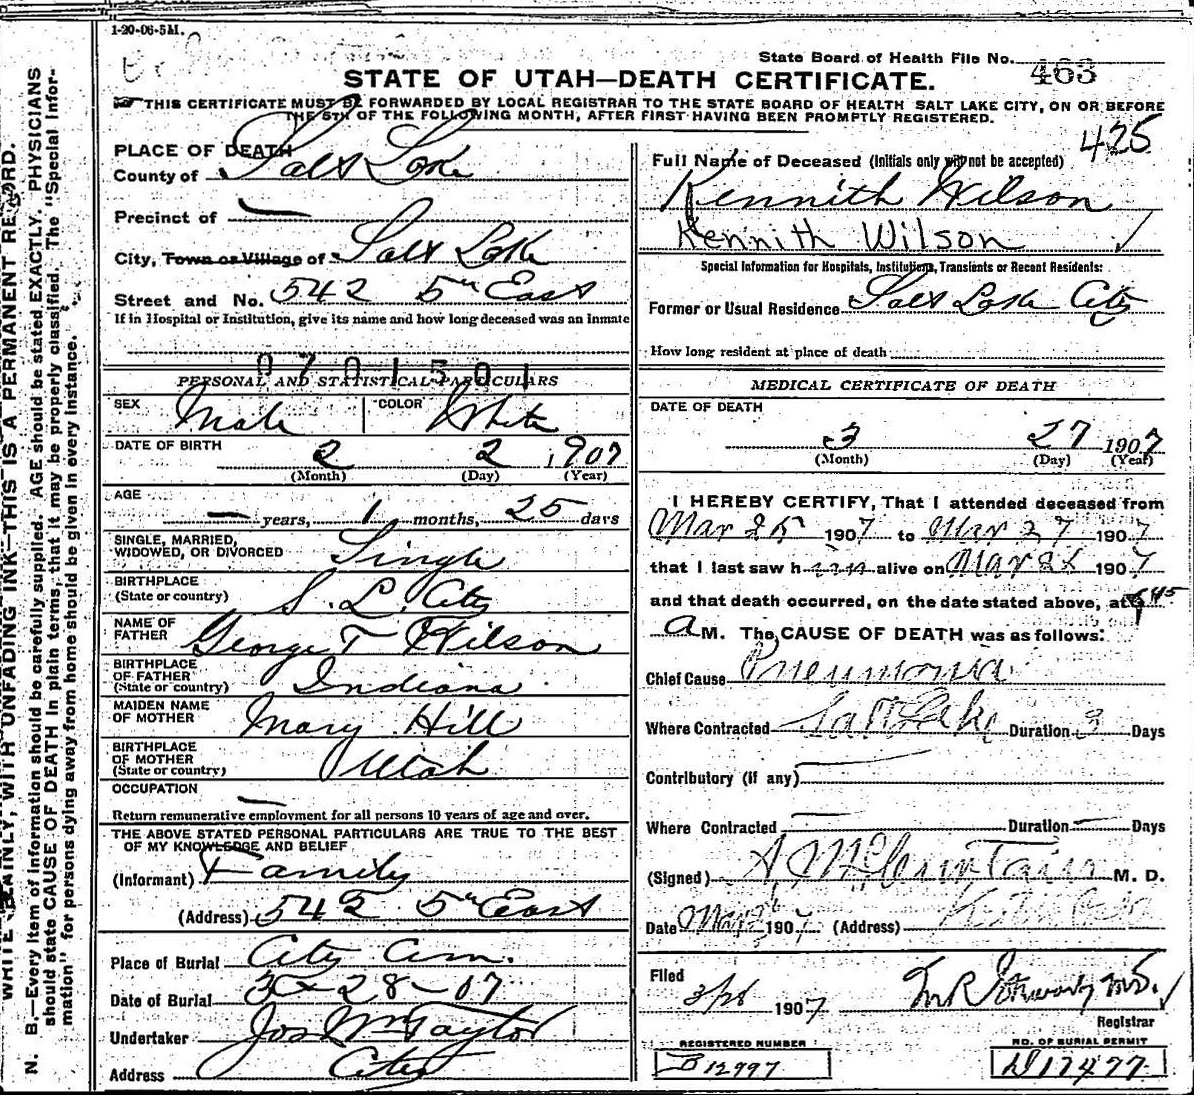 1-20-06-5M.
State Board of Health File No. 463
STATE OF UTAH—DEATH CERTIFICATE.
THIS CERTIFICATE MUST BE FORWARDED BY LOCAL REGISTRAR TO THE STATE BOARD OF HEALTH SALT LAKE CITY, ON OR BEFORE
THE 5TH OF THE FOLLOWING MONTH, AFTER FIRST HAVING BEEN PROMPTLY REGISTERED.
425
WRITE PLAINLY, WITH UNFADING INK—THIS IS A PERMANENT RECORD.
N. B.—Every item of information should be carefully supplied. AGE should be stated EXACTLY. PHYSICIANS
should state CAUSE OF DEATH in plain terms, that it may be properly classified. The "Special Infor-
mation" for persons dying away from home should be given in every instance.
PLACE OF DEATH
County of Salt Lake
Precinct of —
City, Town or Village of Salt Lake
Street and No. 542 5th East
If in Hospital or Institution, give its name and how long deceased was an inmate
0701501
PERSONAL AND STATISTICAL PARTICULARS
SEX Male COLOR White
DATE OF BIRTH
2 2 1907
(Month) (Day) (Year)
AGE
— years, 1 months, 25 days
SINGLE, MARRIED,
WIDOWED, OR DIVORCED Single
BIRTHPLACE
(State or country) S. L. City
NAME OF
FATHER George T Wilson
BIRTHPLACE
OF FATHER
(State or country) Indiana
MAIDEN NAME
OF MOTHER Mary Hill
BIRTHPLACE
OF MOTHER
(State or country) Utah
OCCUPATION
—
Return remunerative employment for all persons 10 years of age and over.
THE ABOVE STATED PERSONAL PARTICULARS ARE TRUE TO THE BEST
OF MY KNOWLEDGE AND BELIEF
(Informant) Family
(Address) 542 5th East
Place of Burial City Cem.
Date of Burial 3-28-07
Undertaker Jos Wm Taylor
Address City
Full Name of Deceased (Initials only will not be accepted)
Kennith Wilson
Kennith Wilson
Special Information for Hospitals, Institutions, Transients or Recent Residents:
Former or Usual Residence Salt Lake City
How long resident at place of death
MEDICAL CERTIFICATE OF DEATH
DATE OF DEATH
3 27 1907
(Month) (Day) (Year)
I HEREBY CERTIFY, That I attended deceased from
Mar 25 1907 to Mar 27 1907
that I last saw him alive on Mar 1907
and that death occurred, on the date stated above, at 45
A M. The CAUSE OF DEATH was as follows:
Chief Cause Pneumonia
Where Contracted Salt Lake Duration 3 Days
Contributory (if any) —
Where Contracted — Duration — Days
(Signed) M. D.
Date Mar 1907 (Address)
Filed
3/28 1907
Registrar
REGISTERED NUMBER
B 12997
NO. OF BURIAL PERMIT
D 17477